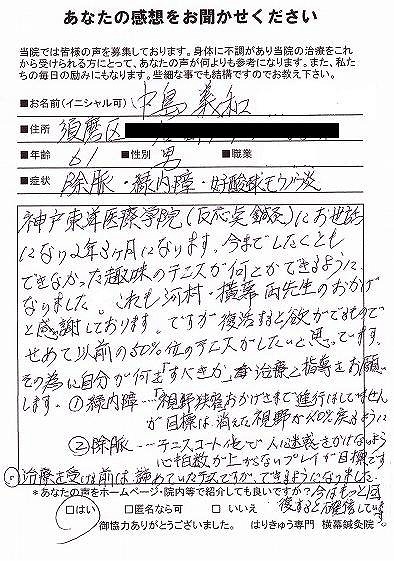 あなたの感想をお聞かせください
当院では皆様の声を募集しております。身体に不調があり当院の治療をこれ
から受けられる方にとって、あなたの声が何よりも参考になります。また、私た
ちの毎日の励みにもなります。些細な事でも結構ですのでお教え下さい。
■お名前(イニシャル可) 中島義和
■住所 須磨区
■年齢 61 ■性別 男 ■職業
■症状 除脈・緑内障・好酸球モウノウ炎
神戸東洋医療学院(反応点鍼灸)にお世話
になり2年3ヶ月になります。今までしたくとも
できなかった趣味のテニスが何とかできるように
なりました。これも河村・横幕両先生のおかげ
と感謝しております。ですが復活すると欲がでるもので
せめて以前の50%位のテニスがしたいと思っています。
その為に自分が何を「すべきか」治療と指導をお願い
します。①緑内障…視野狭窄おかげさまで進行はしていませんが
目標は、消えた視野が40%戻るように
②除脈…テニスコート他で人に迷惑をかけないよう
心拍数が上がらないプレイが目標です
治療を受ける前は諦めていたテニスですが、できるようになりました。
今はもっと回
復すると確信しています。
*あなたの声をホームページ・院内等で紹介しても良いですか?
□はい □匿名なら可 □いいえ
御協力ありがとうございました。 はりきゅう専門 横幕鍼灸院